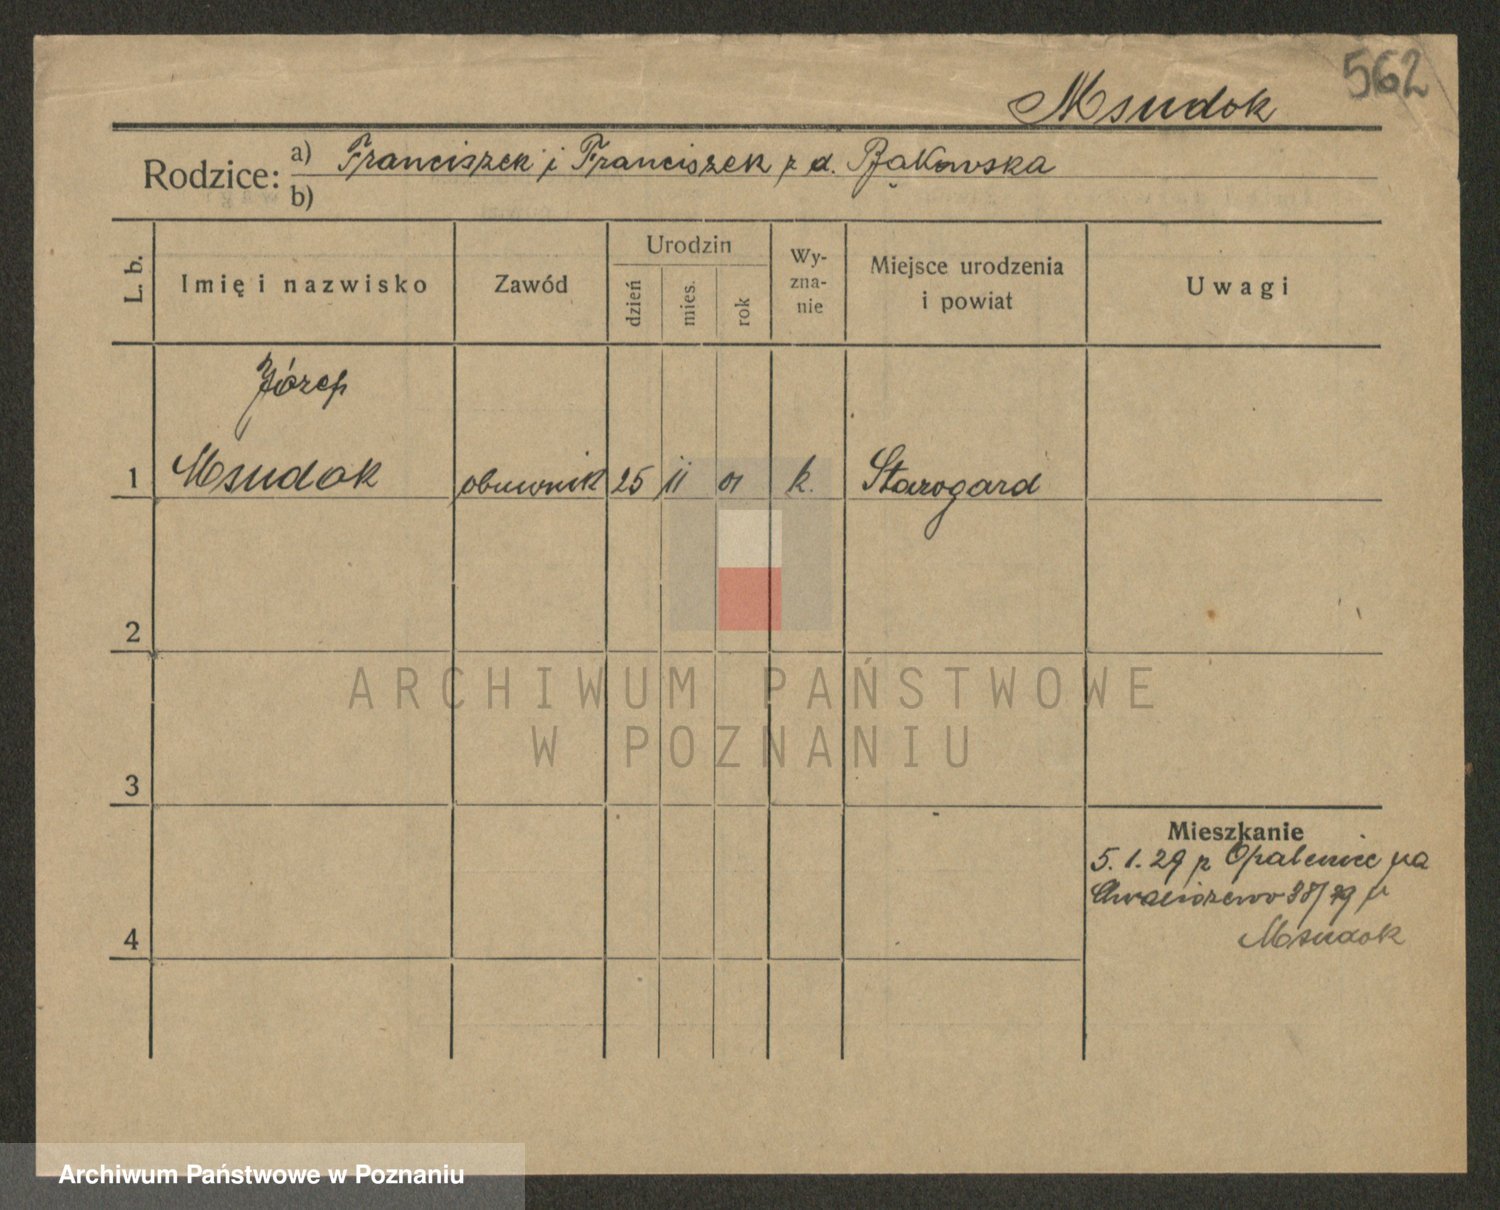 562
Msudok
Rodzice: a) Franciszek i Franciszek z d. Bąkowska
b)
L. b. Imię i nazwisko Zawód Urodzin dzień mies. rok Wy-zna-nie Miejsce urodzenia i powiat Uwagi
Józef
1 Msudok obuwnik 25 11 01 k. Starogard
2
3
4
Mieszkanie
5. 1. 29 z Opalenice na
Chwaliszewo 38/39 u
Msudok
ARCHIWUM PAŃSTWOWE
W POZNANIU
Archiwum Państwowe w Poznaniu